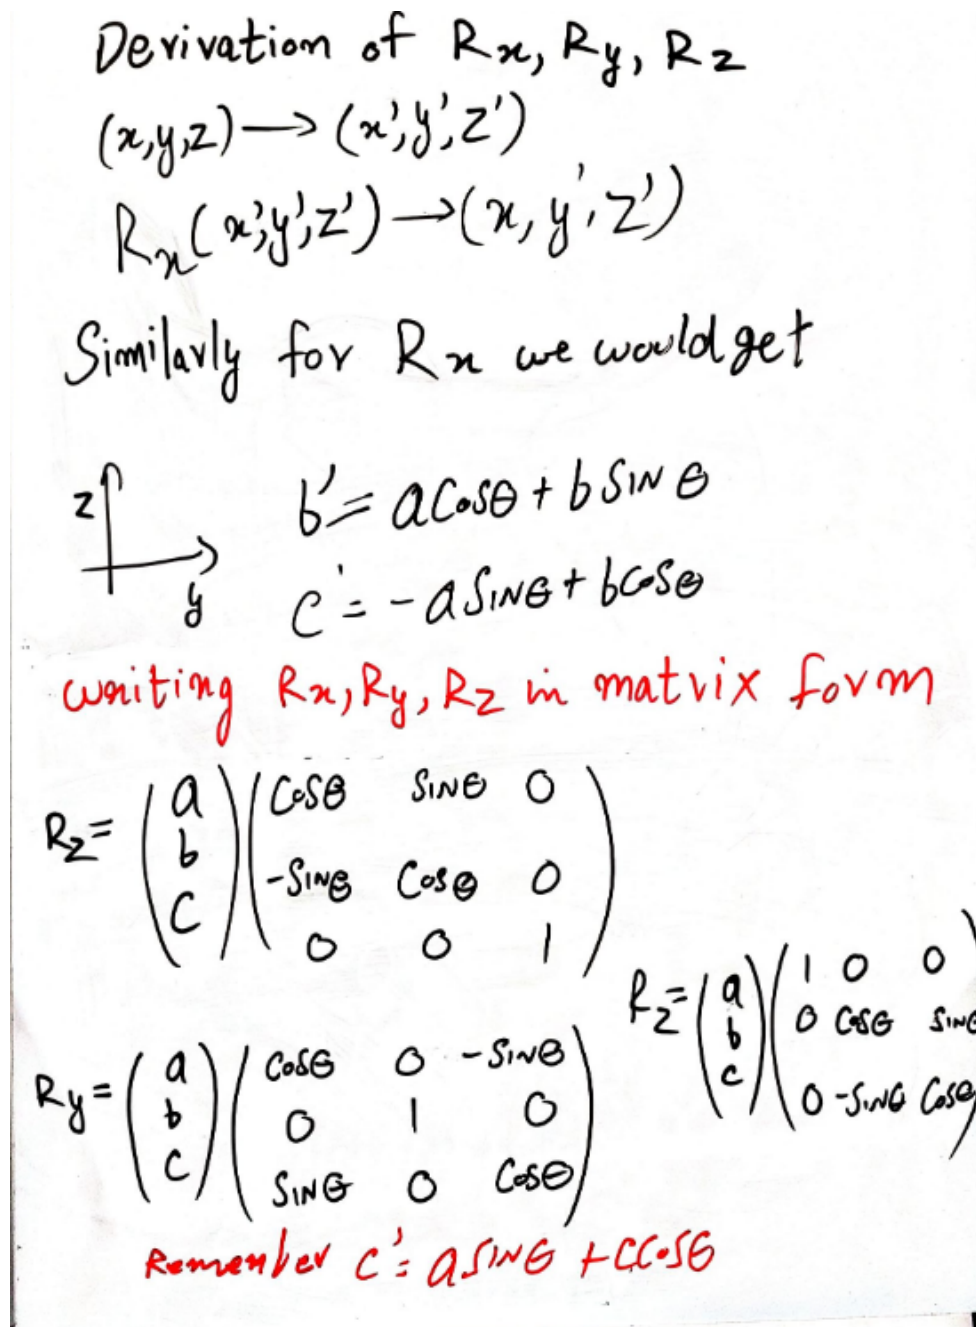 Derivation of Rx, Ry, Rz
(x,y,z) → (x',y',z')
Rx(x',y',z') → (x, y', z')
Similarly for Rx we would get
z
y
b' = a Cosθ + b SINθ
c' = -a SINθ + b Cosθ
writing Rx, Ry, Rz in matrix form
Rz = (a b c) (Cosθ SINθ 0
-SINθ Cosθ 0
0 0 1)
Rz = (a b c) (1 0 0
0 Cosθ SINθ
0 -SINθ Cosθ)
Ry = (a b c) (Cosθ 0 -SINθ
0 1 0
SINθ 0 Cosθ)
Remember c' = a SINθ + c Cosθ